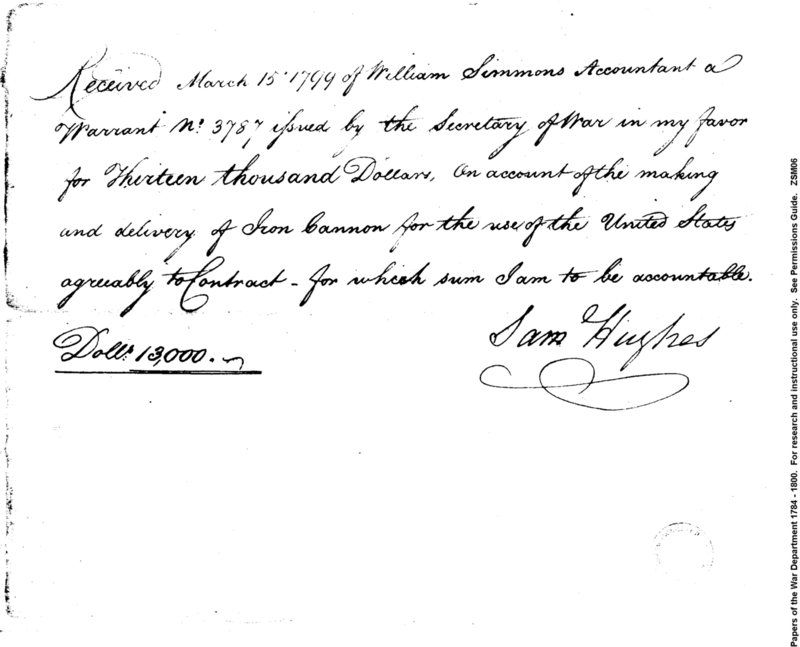 Received March 15 1799 of William Simmons Accountant a
Warrant No. 3787 issued by the Secretary of War in my favor
for Thirteen thousand Dollars, On account of the making
and delivery of Iron Cannon for the use of the United States
agreeably to Contract - for which sum I am to be accountable.
Dolls. 13,000.
Sam Hughes
Papers of the War Department 1784 - 1800. For research and instructional use only. See Permissions Guide. ZSM06